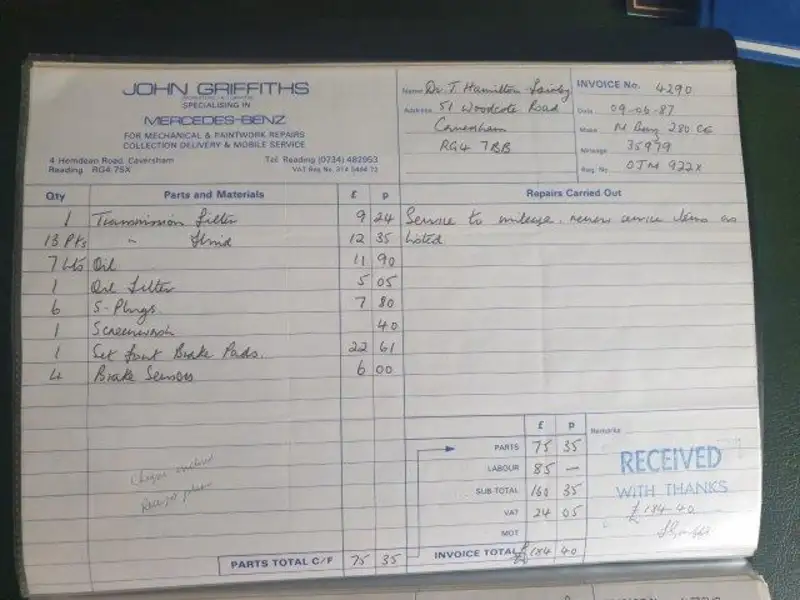 JOHN GRIFFITHS
SPECIALISING IN
MERCEDES-BENZ
FOR MECHANICAL & PAINTWORK REPAIRS
COLLECTION DELIVERY & MOBILE SERVICE
4 Hemdean Road, Caversham
Reading RG4 7SX
Tel. Reading (0734) 482953
VAT Reg No.
Name Dr. T. Hamilton
Address 51 Woodcote Road
Caversham
RG4 7BB
INVOICE No. 4290
Date 09-06-87
Make M Benz 280 CE
Mileage 35979
Reg. No. OJM 922X
Qty Parts and Materials £ p Repairs Carried Out
1 Transmission Filter 9 24 Service to mileage, renew service items as
13 Pts " Fluid 12 35 listed
7 Lts Oil 11 90
1 Oil Filter 5 05
6 S-Plugs 7 80
1 Screenwash 40
1 Set front Brake Pads. 22 61
4 Brake Sensors 6 00
£ p
Remarks
PARTS 75 35
LABOUR 85 —
SUB TOTAL 160 35
VAT 24 05
MOT
INVOICE TOTAL £184 40
RECEIVED
WITH THANKS
£184-40
Cheque enclosed
Receipt please
PARTS TOTAL C/F 75 35